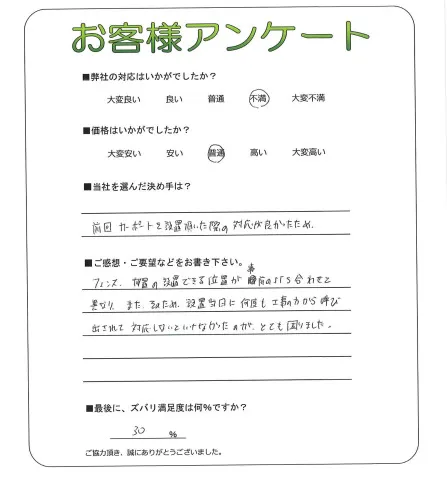 お客様アンケート
■弊社の対応はいかがでしたか?
大変良い 良い 普通 不満 大変不満
■価格はいかがでしたか?
大変安い 安い 普通 高い 大変高い
■当社を選んだ決め手は?
前回カーポートを設置頂いた際の対応が良かったため.
■ご感想・ご要望などをお書き下さい。
フェンス、物置の設置できる位置が事前の打ち合わせと
異なり、また、そのため、設置当日に何度も工事の方から呼び
出されて対応しないといけなかったのが、とても困りました。
■最後に、ズバリ満足度は何%ですか?
30 %
ご協力頂き、誠にありがとうございました。